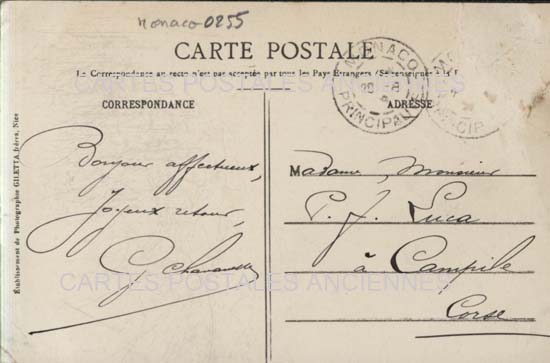 Monaco 0255
CARTE POSTALE
La Correspondance au recto n'est pas acceptée par tous les Pays Étrangers (Se renseigner à la P
CORRESPONDANCE
ADRESSE
MONACO
PRINCIPAU
Bonjour affectueux,
Joyeux retour,
Madame, Monsieur
P. J. Luca
à Campile
Corse
CARTES POSTALES ANCIENNES
Établissement de Photographie GILETTA frères, Nice